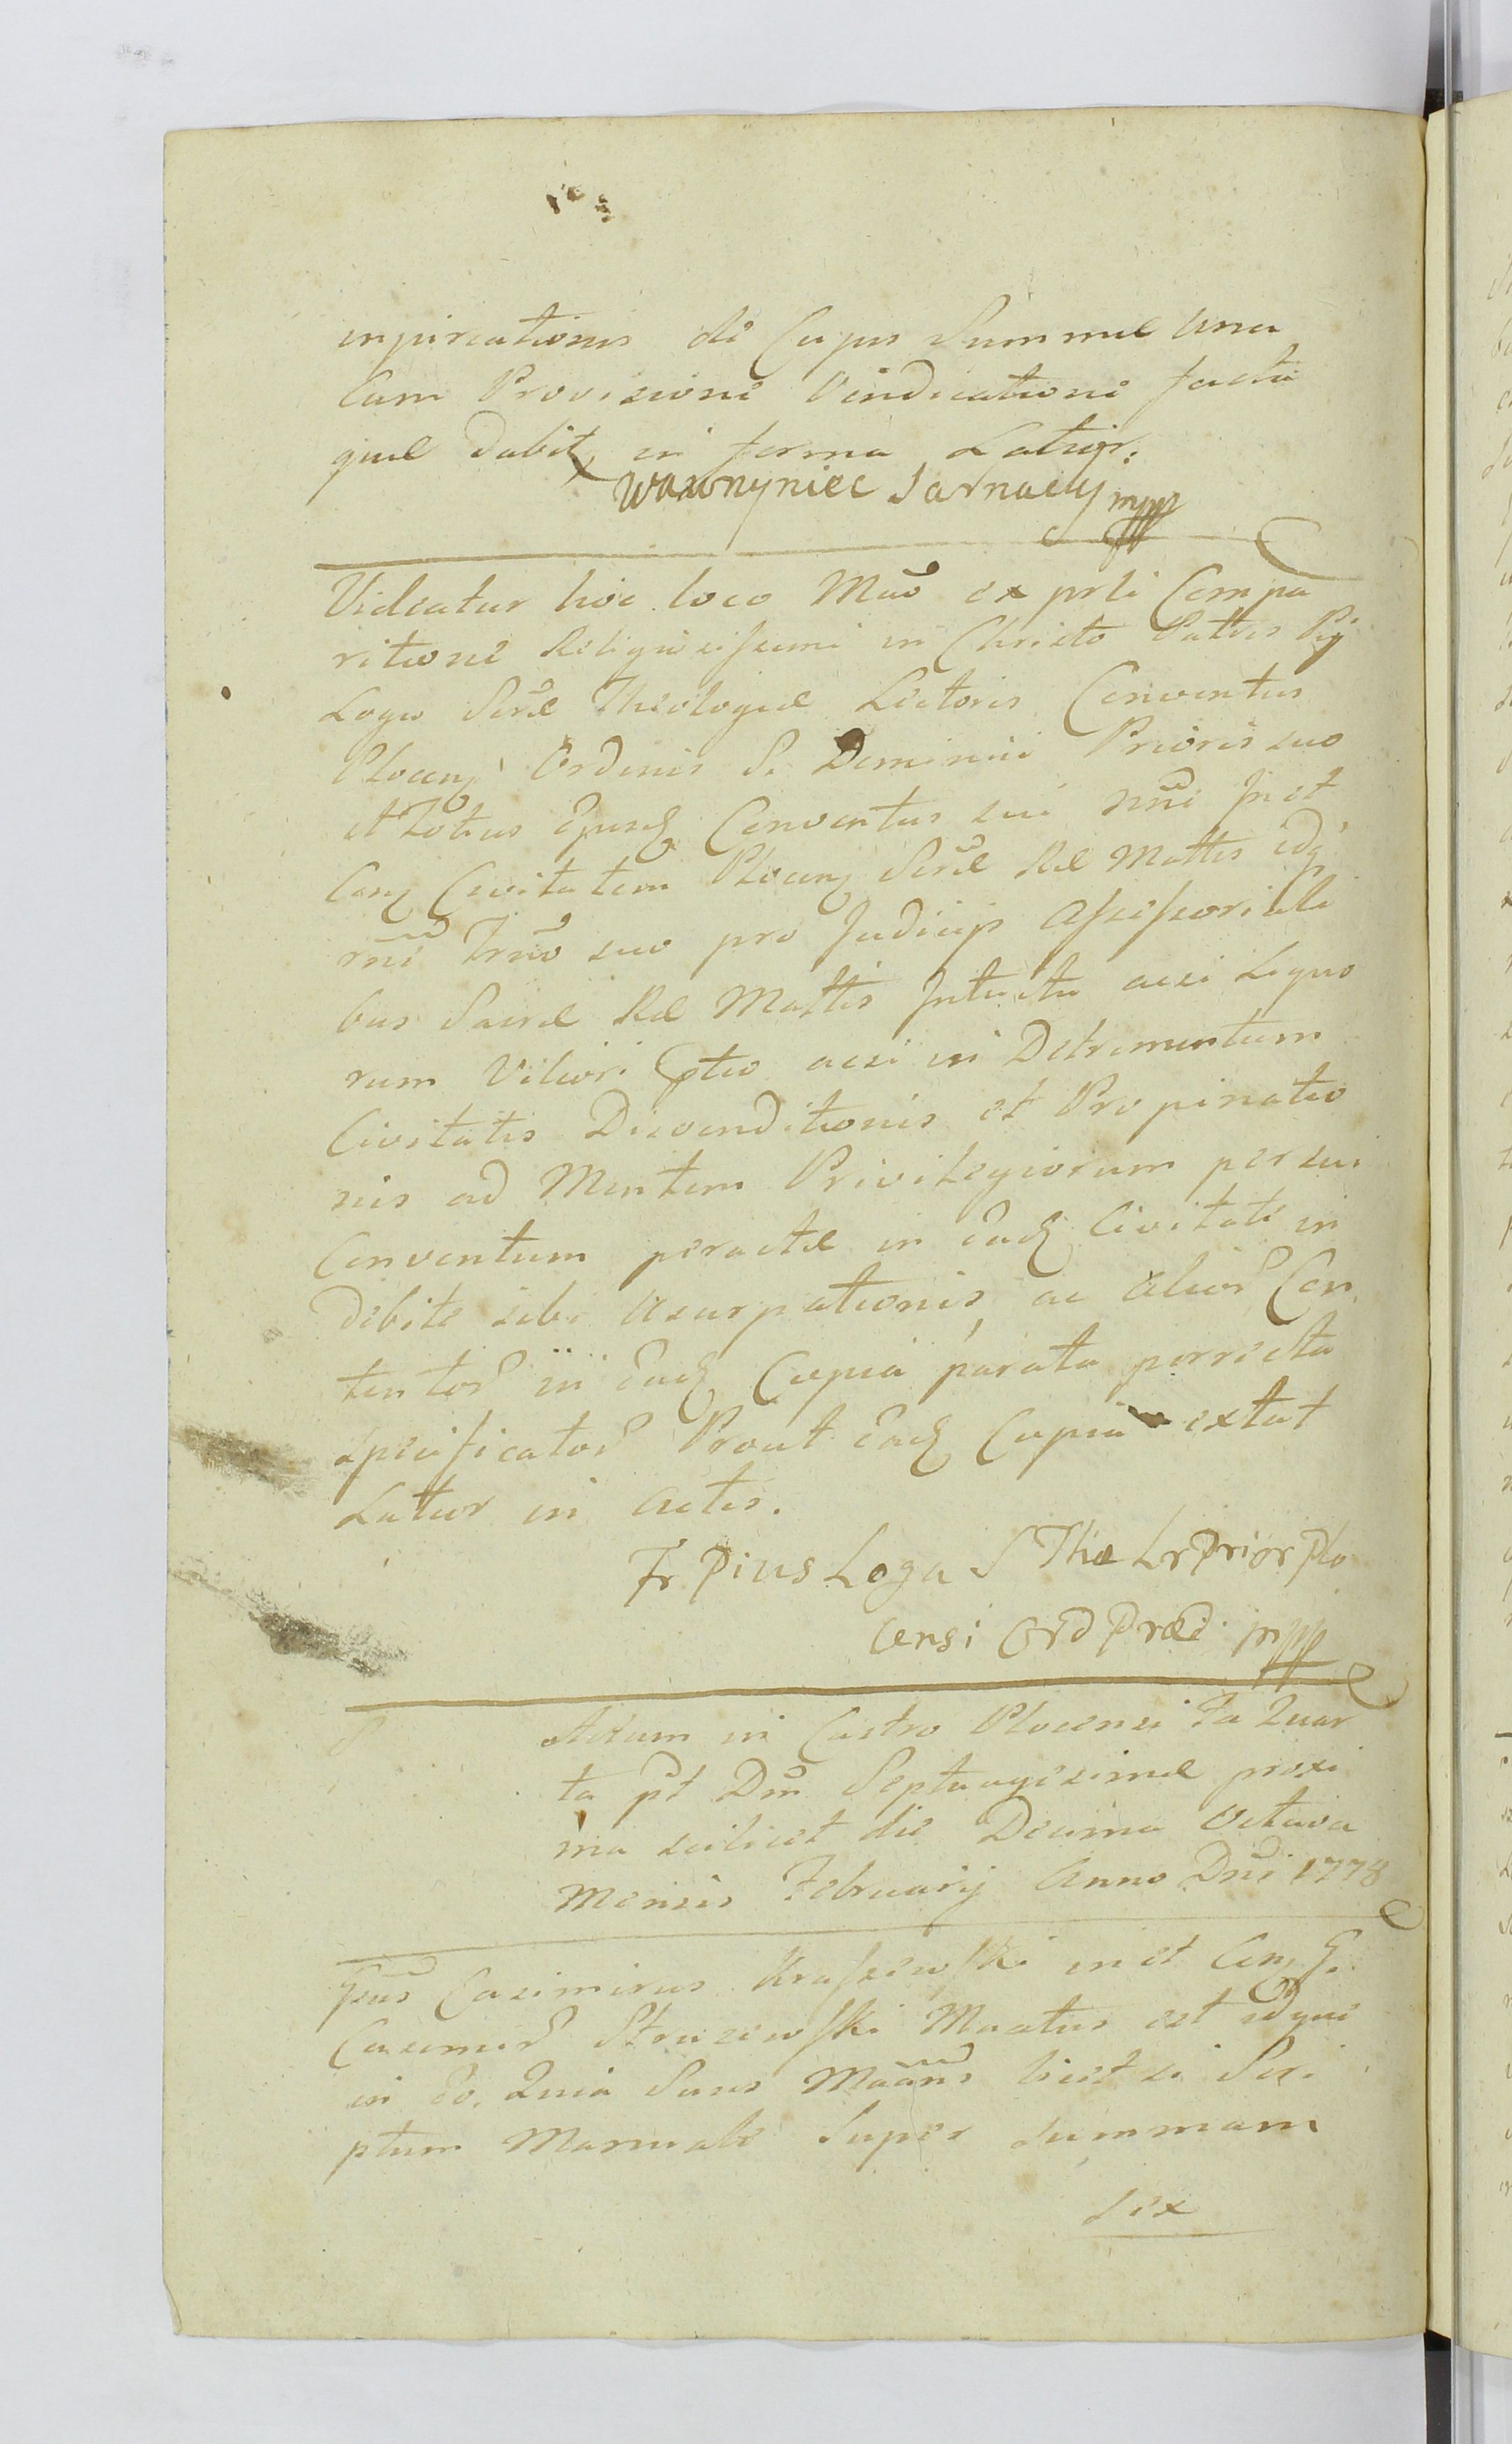 inpireationis de Cujus Summæ una
Cum Provisione Vindicatione facta
quæ dabit in forma Latior:
Wawrzyniec Sarnacky mppp
Videatur hoc loco Mtto ex prti Compa
ritione Religiosissimi in Christo Patris Pij
Loga Scræ Theologiæ Lectoris Conventus
Plocen Ordinis S. Dominici Prioris suo
et Totius Ejusd Conventus sui nne In et
Con Civitatem Plocen Scræ Ræ Mattis
Trno suo pro Judicijs Assessoriali
bus Sacræ Ræ Mattis Intuitu acsi Ligno
rum Viliori ptio acsi in Detrimentum
Civitatis Divenditionis et Propinatio
nis ad Mentem Privilegiorum per sui
Conventum peractæ in ead Civitate in
debite sibi Usurpationis, ac alior Con
tentor in ead Copia parata porrecta
specificator Prout ead Copia extat
Latior in Actis.
Fr Pius Loga S Thæ Lr Prior Plo
censi Ord Præd. mppp
Actum in Castro Plocensi Fa Quar
ta pt Dm Septuagesimæ proxi
ma scilicet die Decima Octava
Mensis Februarij Anno Dni 1778
Casimirus Kraszewski in et Con G.
Casimir Struzewski Mtatus est idque
in eo. Quia Suus Mtans licet si Scri
ptum Manuale Super Summam
sex